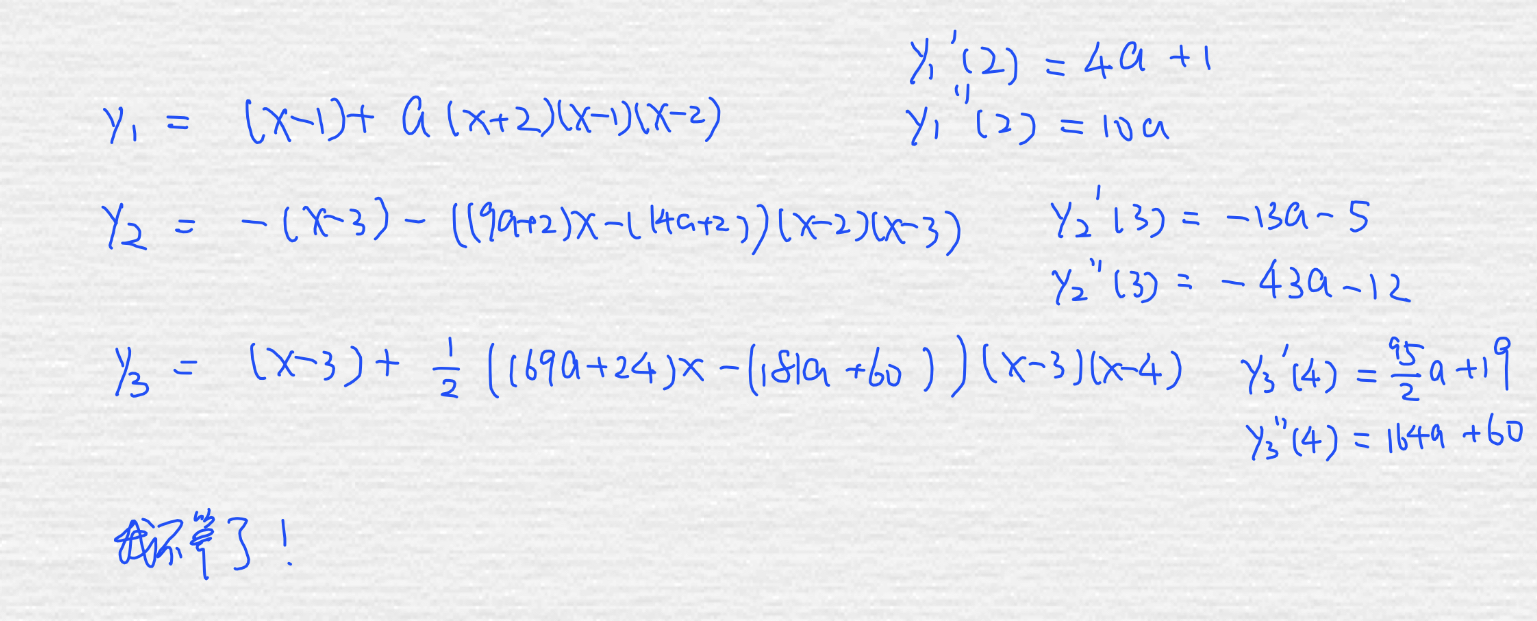 y₁'(2) = 4a + 1
y₁ = (x-1)+ a(x+2)(x-1)(x-2)
y₁''(2) = 10a
y₂ = -(x-3) - ((9a+2)x-(14a+2))(x-2)(x-3)
y₂'(3) = -13a-5
y₂''(3) = -43a-12
y₃ = (x-3)+ 1/2 ((69a+24)x-(181a+60))(x-3)(x-4)
y₃'(4) = 95/2 a+19
y₃''(4) = 164a+60
我不算了!